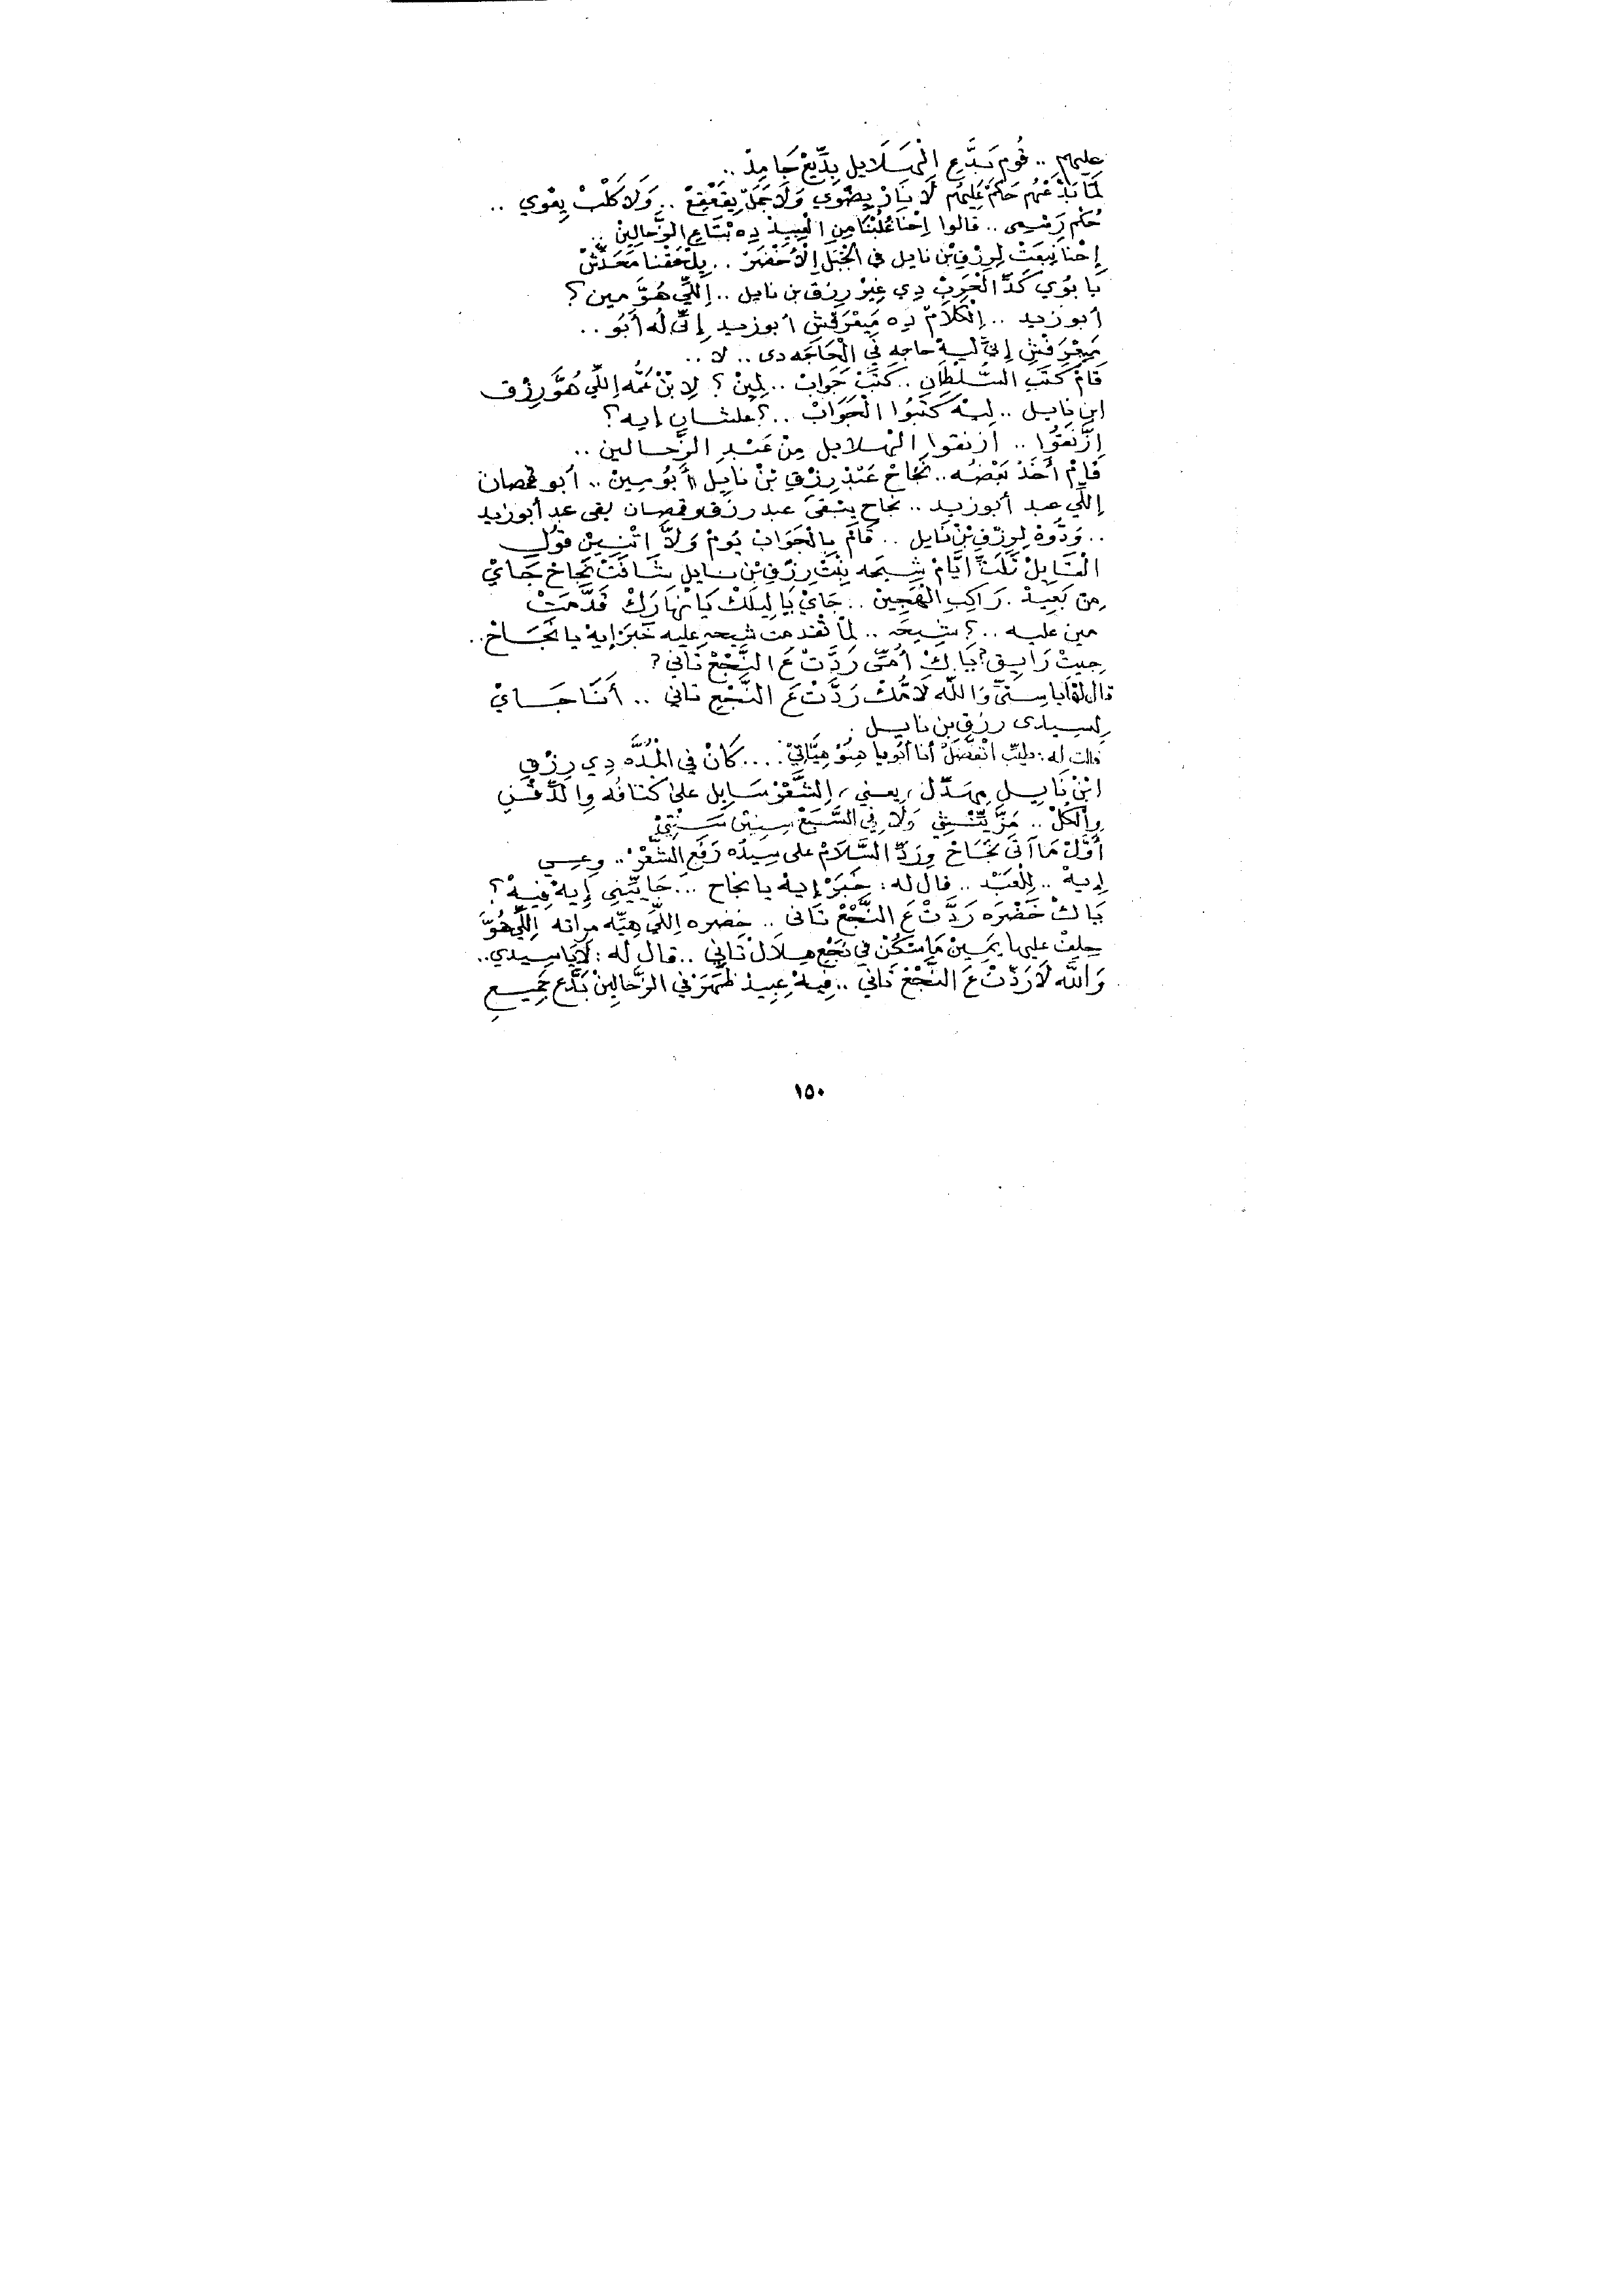 عليهم .. قُوم بَدَّع الْهَلَايل بِدِّيعْ جَامِدْ ..
لمَّا بَدَّعْهُم حَكَمْ عَلِيهُم لَا نَارْ بِضْوِي وَلَا جَمَلْ يِقَعْقِعْ .. وَلَا كَلْبْ يِعْوِي ..
حُكْم رَسْمِى .. قالوا اِحْنَا غُلُبْنَا مِن الْعِبِيدْ دِه بْتَاع الزَّحَالِينْ ..
إِحْنا نِبْعَتْ لِرِزْق بْن نايل فى الجْبَل اِلْأَخْضَرْ .. يِلْحَقْنا مَحَدِّشْ
يا بُوي كَدّ الْحَرِبْ دِي غِيْر رزق بن نايل .. اِللِّي هُوَّ مين ؟
أبوزيد .. اِلْكَلَامْ دِه مَيِعْرَفْش أبوزيد إِنِّ لُه أَبُو ..
مَيِعْرَفْش إِنّ لِيهْ حاجه فِي الْحَاجَه دى .. لا ..
قَامْ كَتَب السُّلْطَان .. كَتَبْ جَوَابْ .. لِمِينْ ؟ لِابْنْ عَمُّه اِللِّي هُوَّ رِزْق
ابن نايل .. لِيهْ كَتَبُوا الْجَوَابْ .. ؟ علشان إيه ؟
اِزَّنَقُوا .. ازنقوا الهلايل مِنْ عَبْد الزَّحالين ..
قَامْ أَخَدْ بَعْضُه .. نَجَاحْ عَبْدْ رِزْق بْنْ نَايِل أَبُو مِينْ .. أبو قمصان
إللِّي عبد أبوزيد .. نجاح يِبْقَى عبد رزق وقمصان بقى عبد أبوزيد
.. وَدُّوهْ لِرِزْق بْنْ نَايل .. قَامْ بِالْجَوَابْ يُومْ وَلَّا اتْنِينْ قُول
الْقَايِلْ تَلَتّ ايَّامْ شِيحَه بِنْتْ رِزْق بْن نايل شَافَتْ نَجَاحْ جَايْ
مِنْ بَعِيدْ . رَاكِب الْهَجِينْ .. جَايْ يَا لِيلَكْ يَا نْهَارَكْ قَدَّمَتْ
مين عليه .. ؟ شِيحَه .. لمَّا تْقدمت شيحه عليه خَبَرْ إيهْ يا نَجَاحْ ..
جِيتْ رَايِق ؟ يَاكْ أُمِّى رَدَّتْ عَ النَّجْعْ تَانِي ؟
قال لها يا سِتِّي وَاللَّه لَامُّكْ رَدَّتْ عَ النَّجْع تاني .. أَنَا جَايْ
لسيدى رزق بن نايل .
قالت له : طيِّب اتْفَضَّلْ أنا أَبُويا هِنُوْ هِيَّاتِيْ .... كَانْ فِي الْمُدَّه دِي رِزْق
ابْنْ نَايل مِهَدِّل ، يعني ، اِلشَّعْرْ سَايِل على كْتَافُه وِالدَّقْن
وِالْكُلّ .. مَزَّيِّنْشِي وَلَا فِي السَّبَعْ سِنِينْ سَنْتِيْ
أَوَّلْ مَا آتَى نَجَاحْ وِرَدّ السَّلَامْ على سِيدُه رَفَع الشَّعْرْ .. وعـ
إديهْ .. لِلْعَبْد .. قال له : خَبَرْ إيهْ يا نجاح ... جَايِّيني إِيهْ فِيهْ ؟
يَاكْ خَضْرَه رَدَّتْ عَ النَّجْعْ تَانى .. خضره اِللِّي هِيَّه مراته اِللِّي هُوَّ
حِلِفْ عليها يَمِينْ مَا تِسْكُنْ في نَجْع هِلَالْ تَانِي .. قال له : لَا يَا سيدي ..
وَاللَّه لَا رَدِّتْ عَ النَّجْعْ تاني .. فِيهْ عِبِيدْ ظَهَرْ في الزَّحَالِينْ بَدَّع جَمِيع
١٥٠